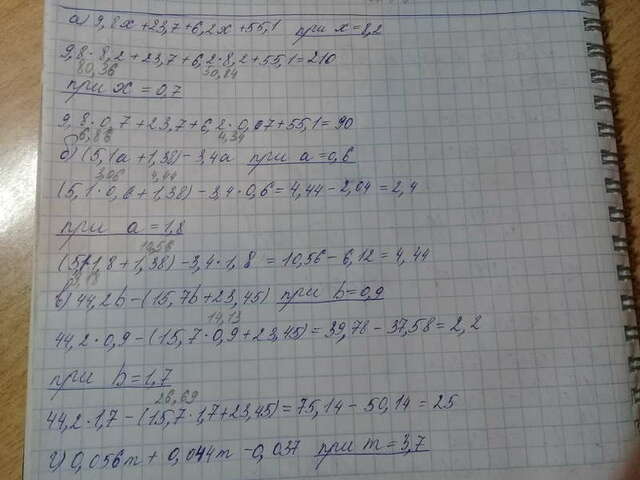 а) 9,8x+23,7+6,2x+55,1 при x=8,2
9,8·8,2+23,7+6,2·8,2+55,1=210
80,36 50,84
при x=0,7
9,8·0,7+23,7+6,2·0,07+55,1=90
6,86 4,34
б) (5,1a+1,38)-3,4a при a=0,6
3,06 4,44
(5,1·0,6+1,38)-3,4·0,6=4,44-2,04=2,4
при a=1,8
10,56
(5,1·1,8+1,38)-3,4·1,8=10,56-6,12=4,44
9,18
в) 44,2b-(15,7b+23,45) при b=0,9
14,13
44,2·0,9-(15,7·0,9+23,45)=39,78-37,58=2,2
при b=1,7
26,69
44,2·1,7-(15,7·1,7+23,45)=75,14-50,14=25
г) 0,056m+0,044m-0,037 при m=3,7